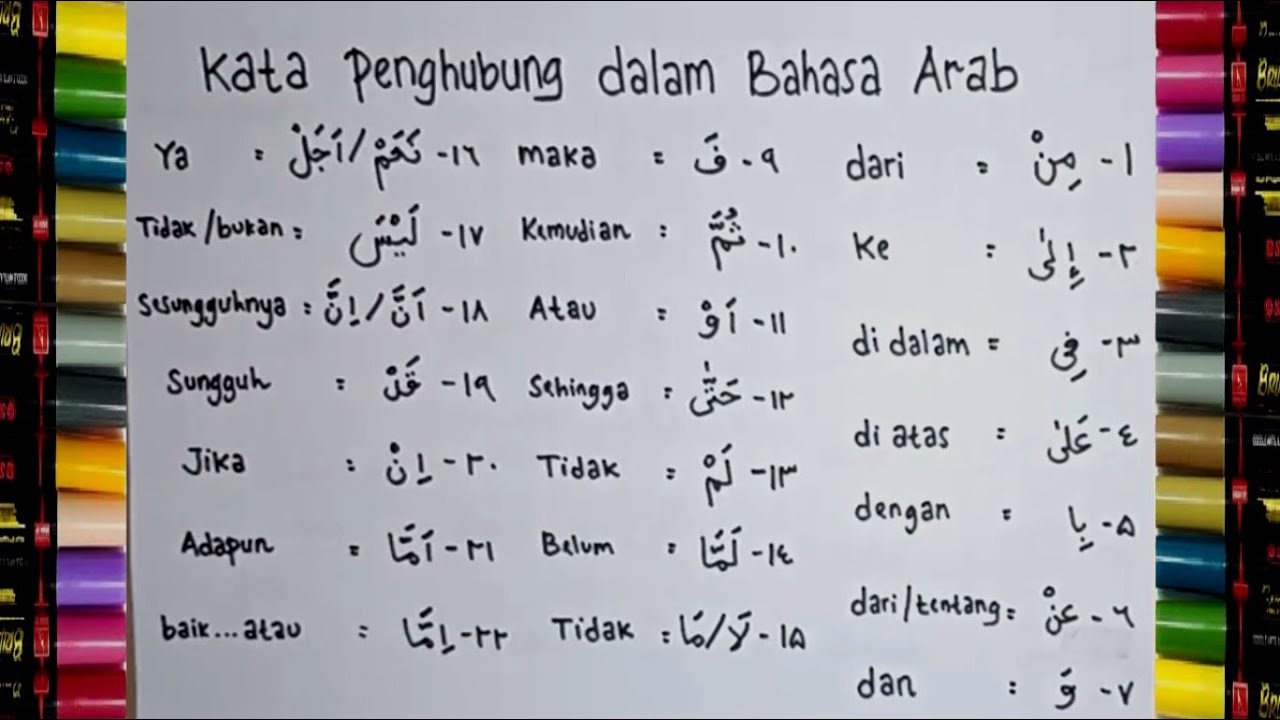 Kata Penghubung dalam Bahasa Arab
١- مِنْ = dari
٢- إِلىٰ = Ke
٣- فِى = di dalam
٤- عَلىٰ = di atas
۵- بِا = dengan
٦- عَنْ = dari/tentang
٧- وَ = dan
٩- فَ = maka
١٠- ثُمَّ = Kemudian
١١- اَوْ = Atau
١٢- حَتّٰى = Sehingga
١٣- لَمْ = Tidak
١٤- لَمَّا = Belum
١۵- لَا/مَا = Tidak
١٦- نَعَمْ/اَجَلْ = Ya
١٧- لَيْسَ = Tidak/bukan
١٨- اَنَّ/اِنَّ = Sesungguhnya
١٩- قَدْ = Sungguh
٢٠- اِنْ = Jika
٢١- اَمَّا = Adapun
٢٢- اِمَّا = baik...atau